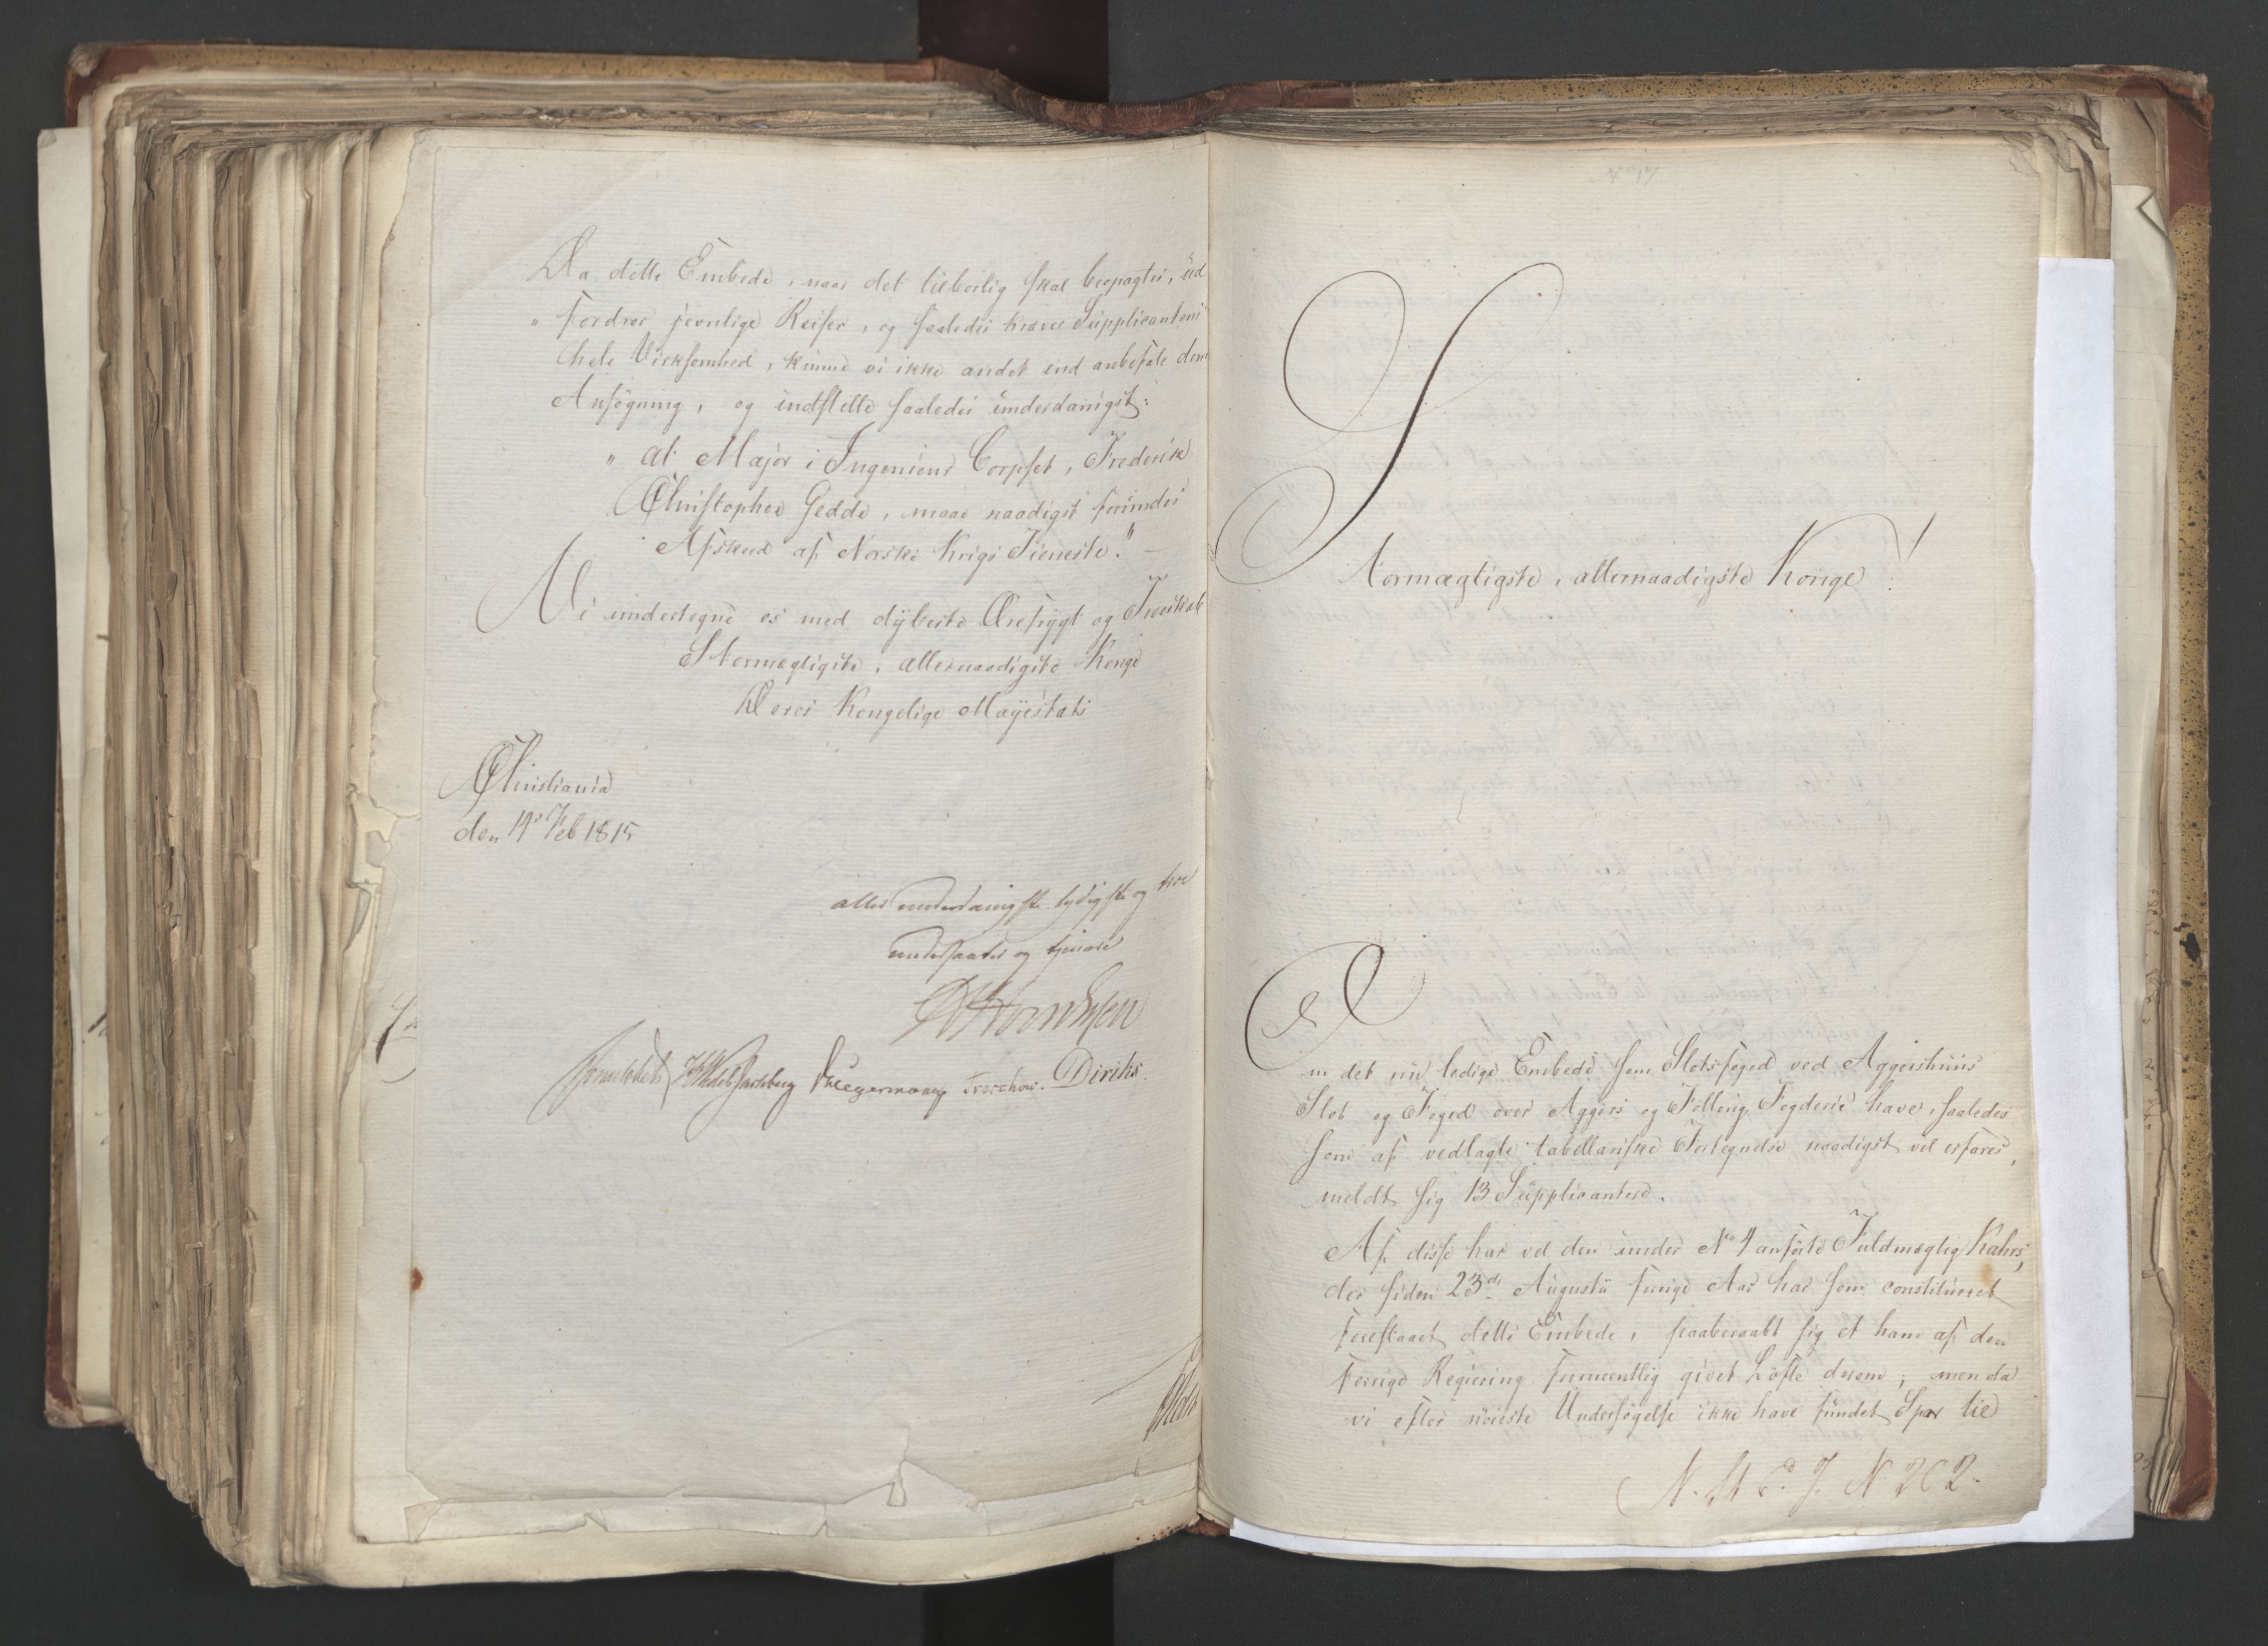 Da dette Embede, naar det tilbørlig skal beopagtes, ud
" fordrer jevnlige Reiser, og saaledes kræver Supplicantens
hele Virksomhed, kunne vi ikke andet end anbefale denne
Ansøgning, og indstille saaledes underdanigst:
" at Major i Ingenieur Corpset, Frederik
Christopher Gedde, maae naadigst forundes
Afskeed af Norske Krigs Tieneste." —
Vi undertegne os med dybeste Ærefrygt og Troeskab
Stormægtigste, allernaadigste Konge
Deres Kongelige Mayestæts
Christiania
den 14de Feb 1815
allerunderdanigste lydigste og troe
undersaatter og tjenere
Sommerfeldt HWedel Jarlsberg Hegermann Treschow. Diriks.
No 17
Stormægtigste, allernaadigste Konge!
Om det nu ledige Embede som Slotsfoged ved Aggershuus
Slot og Foged over Aggers og Folloug Fogderie have, saaledes
som af vedlagte tabellariske Fortegnelse naadigst vil erfares,
meldt sig 13 Supplicantere.
Af disse har vel den under No 4 anførte Fuldmægtig Kahrs,
der siden 23de Augustii forrige Aar har som constitueret
forestaaet dette Embede, paaberaabt sig et ham af den
forrige Regiering formeentlig givet Løfte derom; men da
vi efter nøieste Undersøgelse ikke have fundet Spor til
J. N 202.